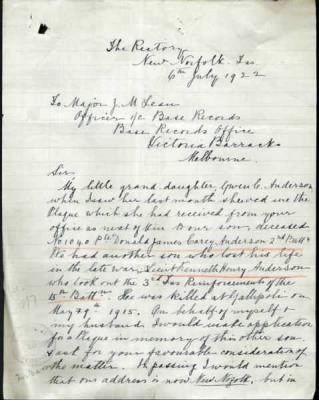 The Rectory
New Norfolk Tas
6th July 1922
To Major J M Lean
Officer i/c Base Records
Base Records Office
Victoria Barracks
Melbourne.
Sir,
My little grand daughter, Gwen C. Anderson
when I saw her last month shewed me the
Plaque which she had received from your
office as next of kin to our son, deceased
No 1040 Pte Donald James Carey Anderson 2nd Batt.
We had another son who lost his life
in the late war, Lieut Kenneth Henry Anderson
who took out the 3rd Tas Reinforcement of the
15th Battn. He was killed at Gallipoli on
May 29th 1915. On behalf of myself &
my husband, I would make application
for a Plaque in memory of this other son.
& ask for your favourable consideration of
the matter. In passing I would mention
that our address is now New Norfolk, but in